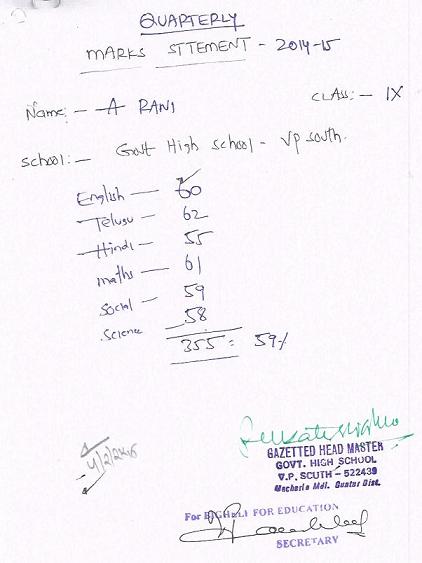 QUARTERLY
MARKS STTEMENT - 2014-15
Name:- A RANI
CLASS:- IX
School:- Govt High School - Vp south.
English — 60
Telugu — 62
Hindi — 55
maths — 61
Social — 59
Science 58
355 = 59%
4/2/2015
GAZETTED HEAD MASTER
GOVT. HIGH SCHOOL
V.P. SOUTH - 522439
Macherla Mdl. Guntur Dist.
For BIGHELI FOR EDUCATION
SECRETARY